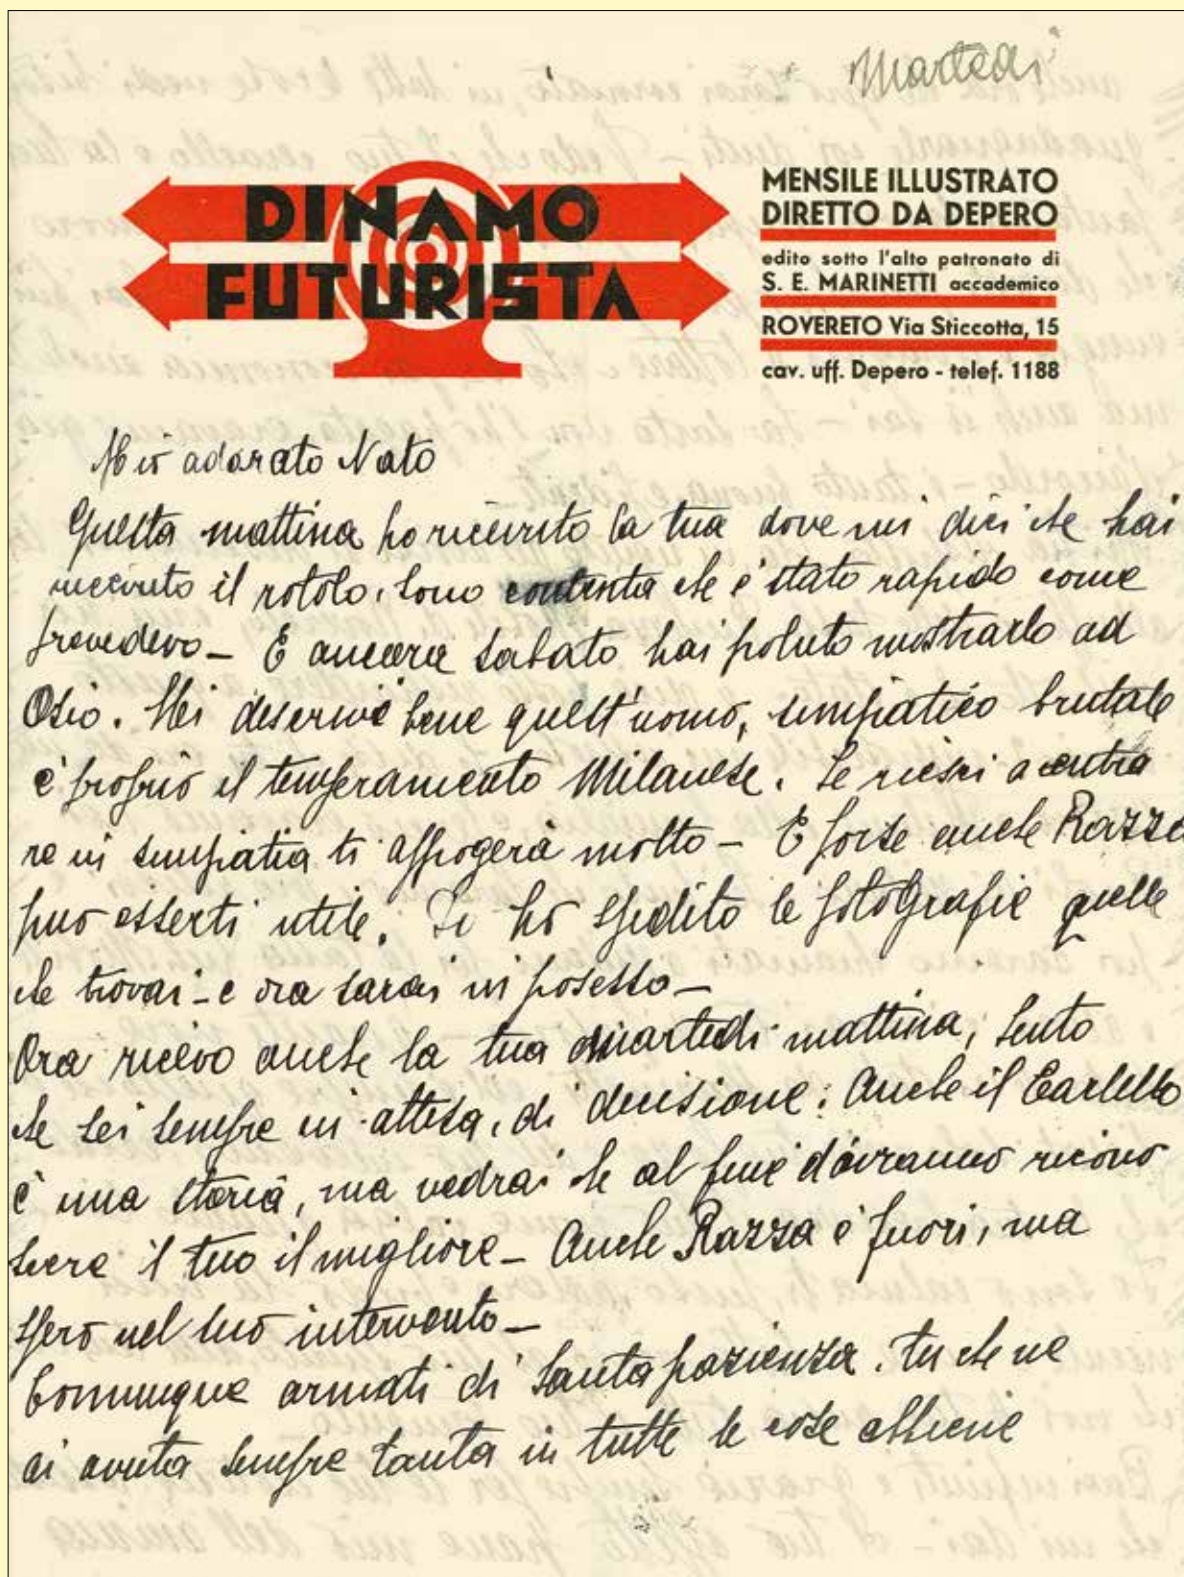 Martedi
DINAMO
FUTURISTA
MENSILE ILLUSTRATO
DIRETTO DA DEPERO
edito sotto l'alto patronato di
S. E. MARINETTI accademico
ROVERETO Via Sticcotta, 15
cav. uff. Depero - telef. 1188
Mio adorato Nato
Questa mattina ho ricevuto la tua dove mi dici che hai
ricevuto il rotolo. Sono contenta che è stato rapido come
prevedevo – E ancora sabato hai potuto mostrarlo ad
Osio. Mi descrivi bene quell'uomo, simpatico brutale
è proprio il temperamento Milanese. Se riesci a entra
re in simpatia ti appogerà molto – E forse anche Razza
può esserti utile. Ti ho spedito le fotografie quelle
che trovai – e ora sarai in posesso –
Ora ricevo anche la tua martedi mattina, sento
che sei sempre in attesa, di decisione. Anche il Cartello
è una storia, ma vedrai che al fine dovranno ricono
scere il tuo il migliore – Anche Razza è fuori, ma
spero nel suo intervento –
Comunque armati di santa pazienza. tu che ne
ai avuta sempre tanta in tutte le cose